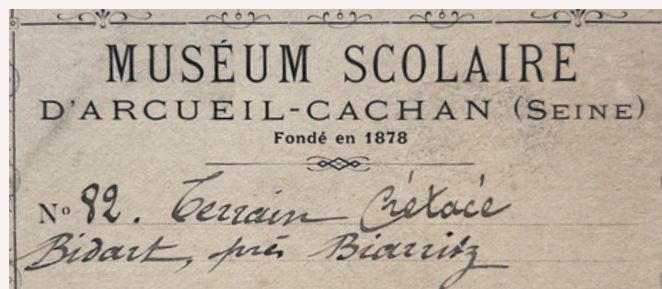 MUSÉUM SCOLAIRE
D'ARCUEIL-CACHAN (SEINE)
Fondé en 1878
Nº 82. Terrain Crétacé
Bidart, près Biarritz